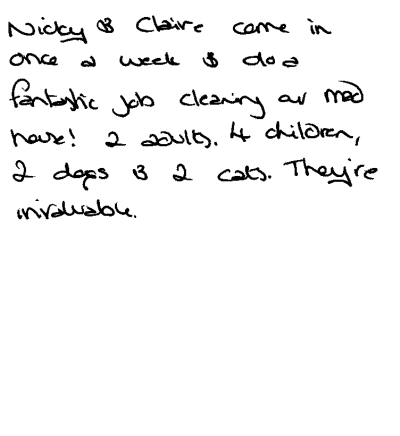 Nicky & Claire come in
once a week & do a
fantastic job cleaning our mad
house! 2 adults, 4 children,
2 dogs & 2 cats. They're
invaluable.